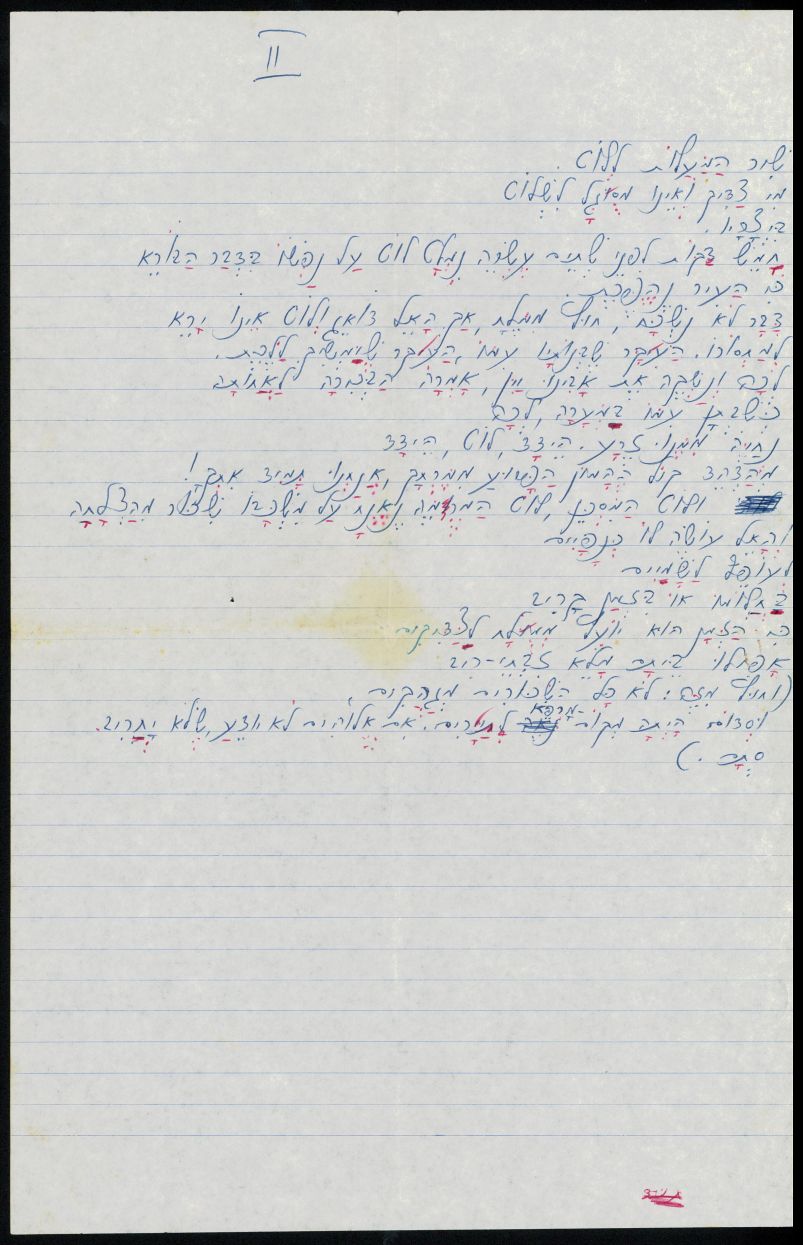 II
שיר המעלות ללוט.
מי צדיק ואינו מסוגל לשלוט
ביצריו.
חמש דקות לפני שתים עשרה נמלט לוט על נפשו בדבר הבורא
כי העיר נהפכת.
דבר לא נשכח, חוץ ממלח, אך האל דואג ולוט אינו ירא
למחסורו. העיקר שבנותיו עמו, העיקר שיימשיך ללכת.
לכה ונשקה את אבינו יין, אמרה הבכירה לאחותה
כששבתן עמו במערה, לכה
נחיה ממנו זרע. הידד, לוט, הידד
מהדהד קול ההמון הפשוע ממרחק, אנחנו תמיד אתך!
ולוט המסכן, לוט המרומה נאנח על משכבו שיכור מהצלחה
והאל עושה לו כנפיים
לעופף לשמיים
בחלומו או בזמן קרוב
כי הזמן הוא יועל ממולח לצדיקים
אפילו היתה מלא זבחי-ריב
(וחוץ מזה: לא כל השיכורים מגהקים,
וסדום היתה מקום מרפא לתיירים. אם אלוהים לא יודע, שלא יחריב
סתם.)